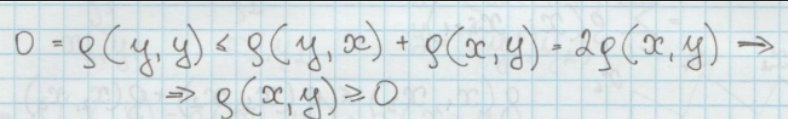 0 = ρ(y, y) ≤ ρ(y, x) + ρ(x, y) = 2ρ(x, y) ⇒
⇒ ρ(x, y) ⩾ 0